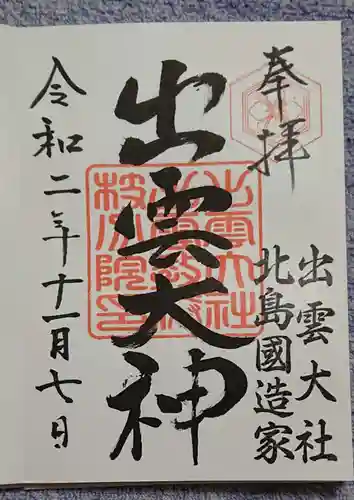 奉拝
出雲大社
北島國造家
出雲大神
令和二年十一月七日